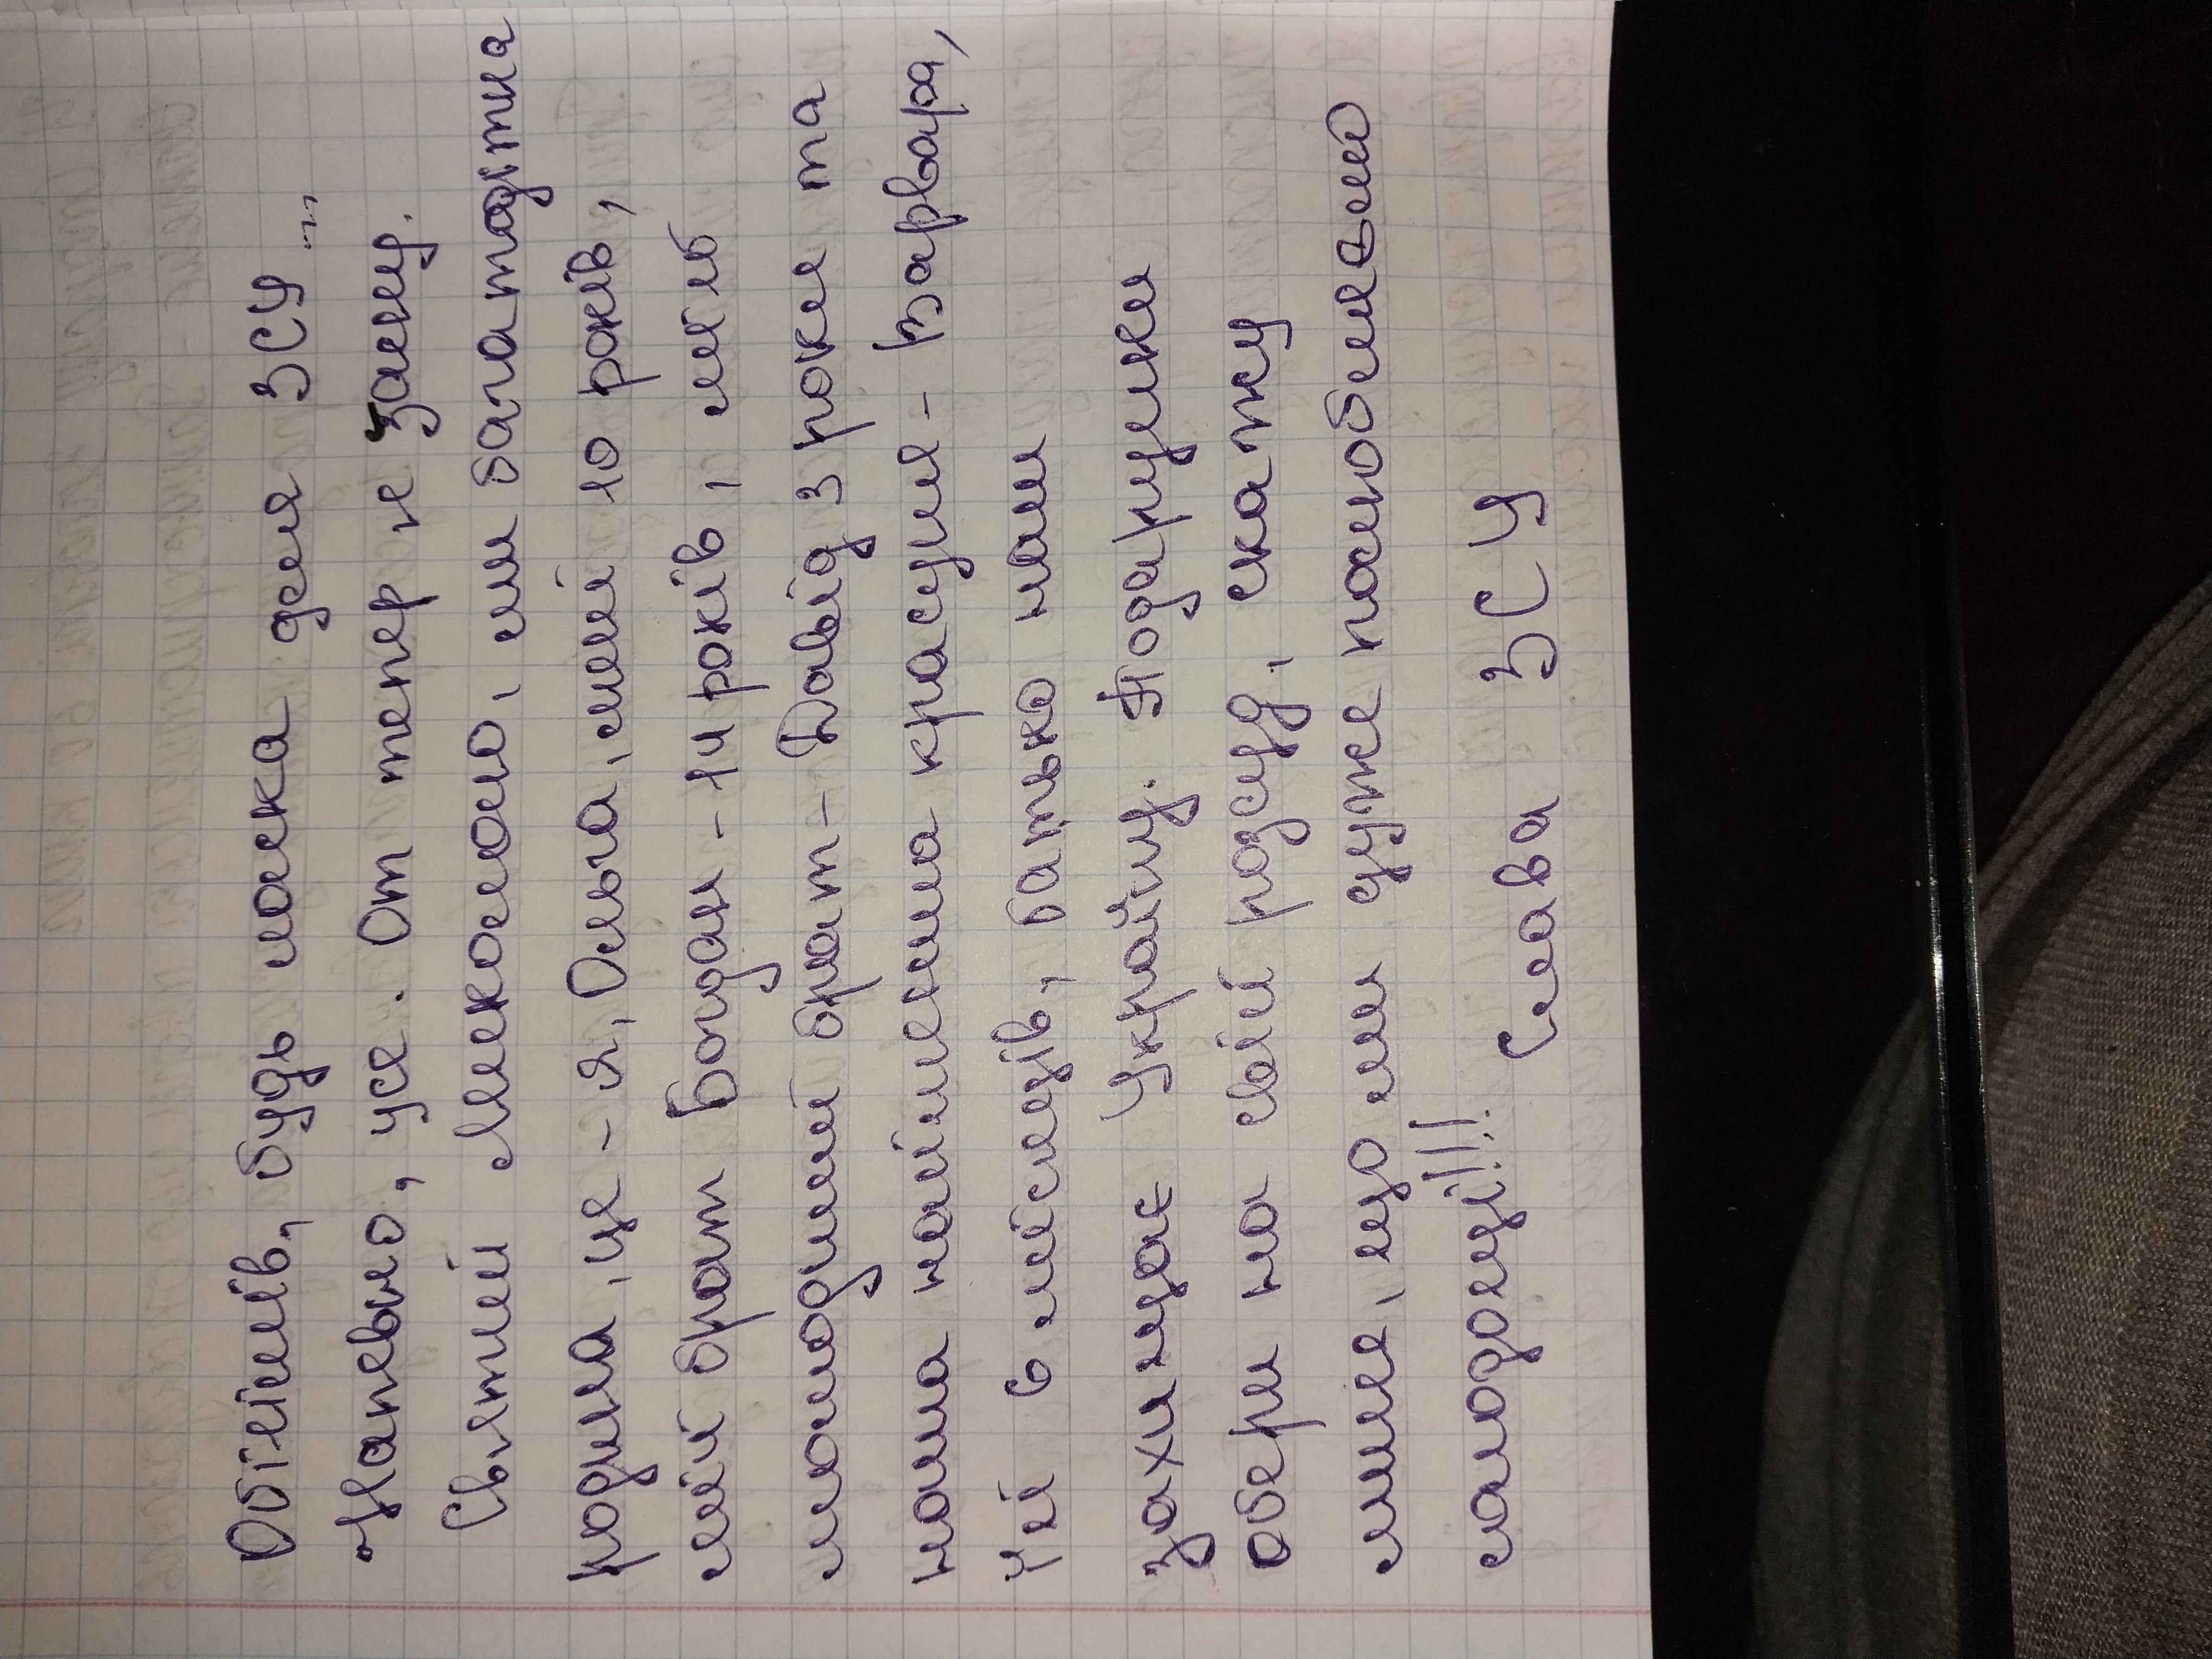 Обіймів, будь ласка для ЗСУ...
Напевно, усе. От тепер я засну.
Святий Миколаю, ми багатодітна
родина, це - я, Ольга, мені 10 років,
мій брат Богдан - 14 років, мій
молодший брат - Давід 3 роки та
наша найменша красуня - Варвара,
їй 6 місяців, батько наш
захищає Україну. Подарунки
обери на свій розсуд, скажу
лише, що ми дуже полюбляємо
солодощі!!!
Слава ЗСУ